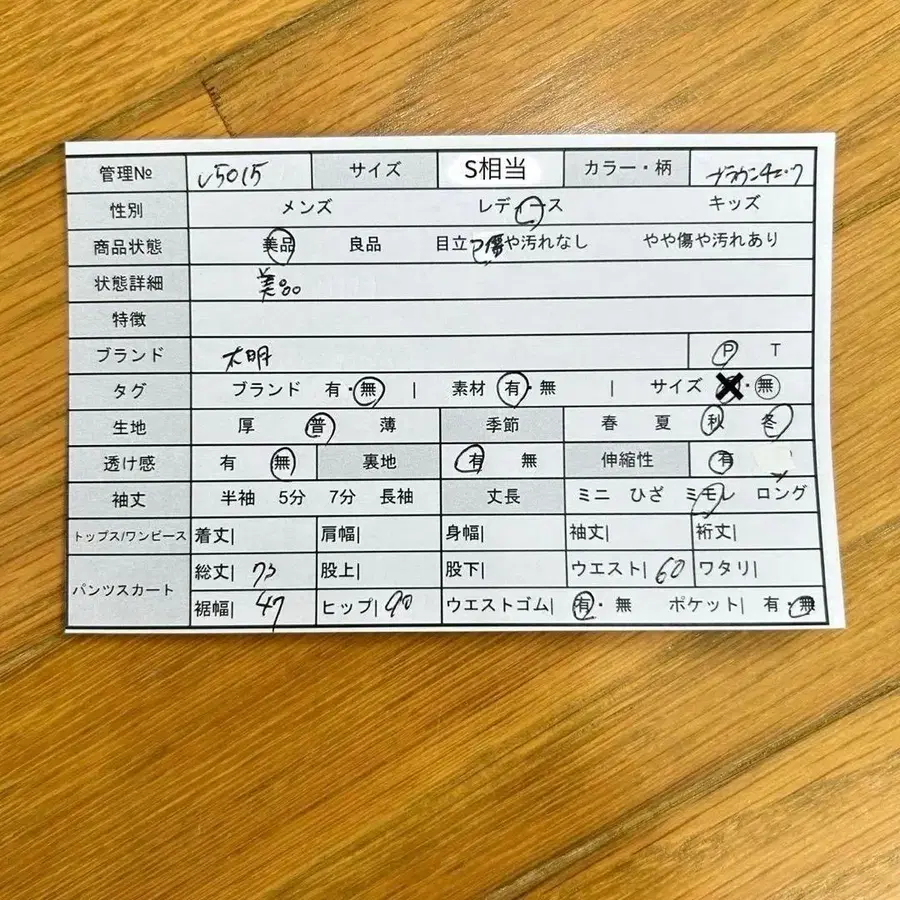 管理№ V5015 サイズ S相当 カラー・柄 ブラウンチェック
性別 メンズ レディース キッズ
商品状態 美品 良品 目立つ傷や汚れなし やや傷や汚れあり
状態詳細 美品
特徴
ブランド 不明 P T
タグ ブランド 有・無 | 素材 有・無 | サイズ ・無
生地 厚 普 薄 季節 春 夏 秋 冬
透け感 有 無 裏地 有 無 伸縮性 有
袖丈 半袖 5分 7分 長袖 丈長 ミニ ひざ ミモレ ロング
トップス/ワンピース 着丈| 肩幅| 身幅| 袖丈| 裄丈|
パンツスカート 総丈| 73 股上| 股下| ウエスト| 60 ワタリ|
裾幅| 47 ヒップ| 90 ウエストゴム| 有・無 ポケット| 有・無